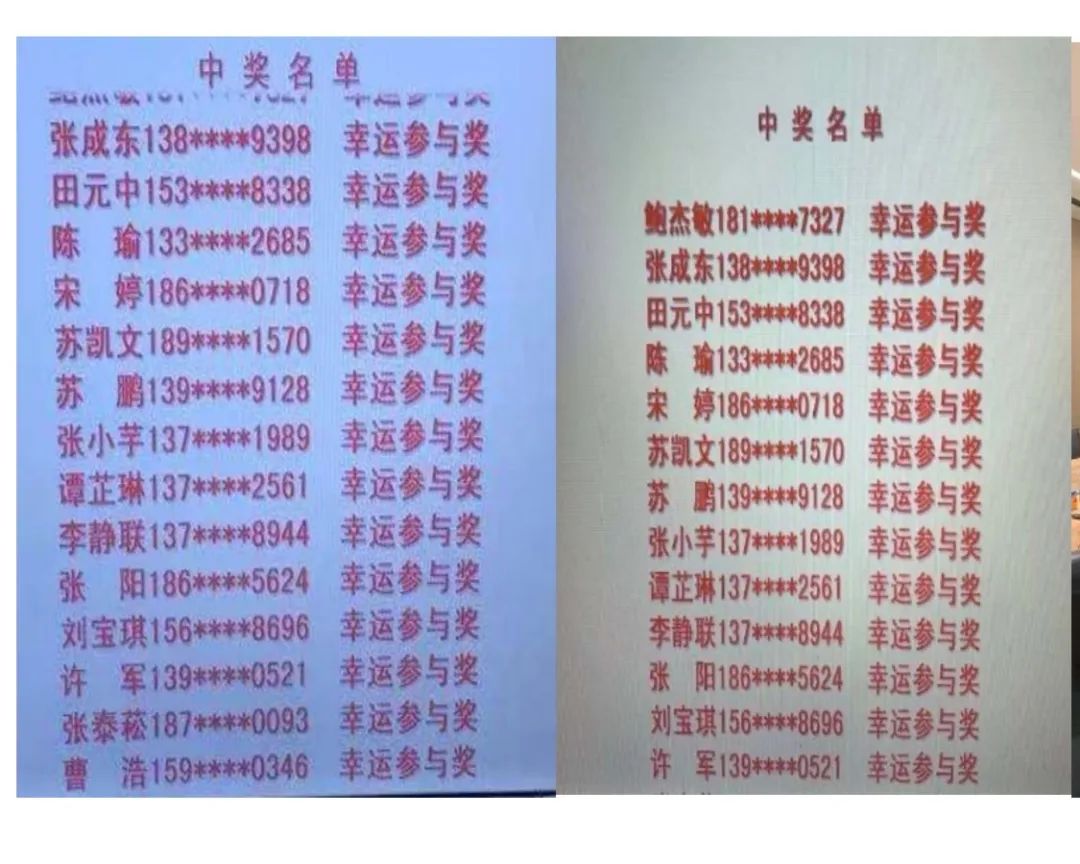 中奖名单
张成东138****9398 幸运参与奖
田元中153****8338 幸运参与奖
陈 瑜133****2685 幸运参与奖
宋 婷186****0718 幸运参与奖
苏凯文189****1570 幸运参与奖
苏 鹏139****9128 幸运参与奖
张小芋137****1989 幸运参与奖
谭芷琳137****2561 幸运参与奖
李静联137****8944 幸运参与奖
张 阳186****5624 幸运参与奖
刘宝琪156****8696 幸运参与奖
许 军139****0521 幸运参与奖
张泰菘187****0093 幸运参与奖
曹 浩159****0346 幸运参与奖
中奖名单
鲍杰敏181****7327 幸运参与奖
张成东138****9398 幸运参与奖
田元中153****8338 幸运参与奖
陈 瑜133****2685 幸运参与奖
宋 婷186****0718 幸运参与奖
苏凯文189****1570 幸运参与奖
苏 鹏139****9128 幸运参与奖
张小芋137****1989 幸运参与奖
谭芷琳137****2561 幸运参与奖
李静联137****8944 幸运参与奖
张 阳186****5624 幸运参与奖
刘宝琪156****8696 幸运参与奖
许 军139****0521 幸运参与奖